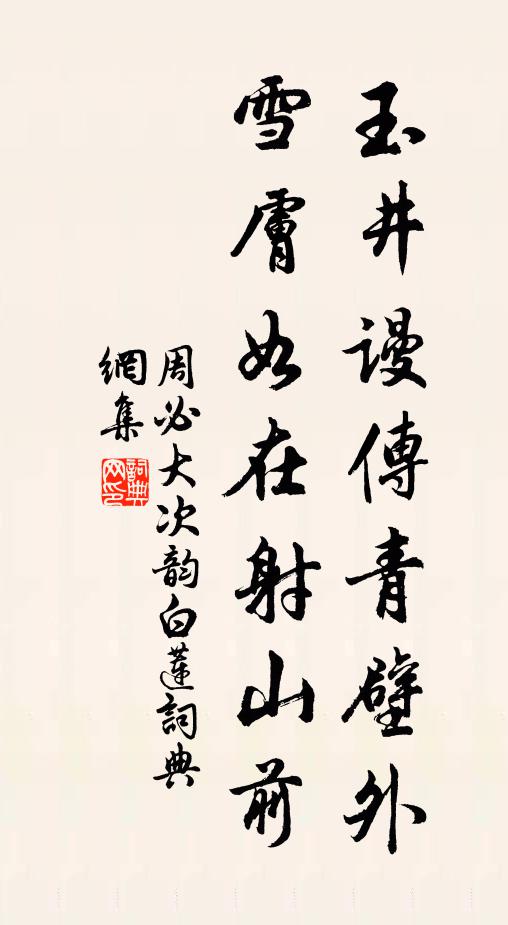 玉井謾傳青壁外
雪膚如在射山前
周必大次韵白蓮詞典
網集
詞典
网印